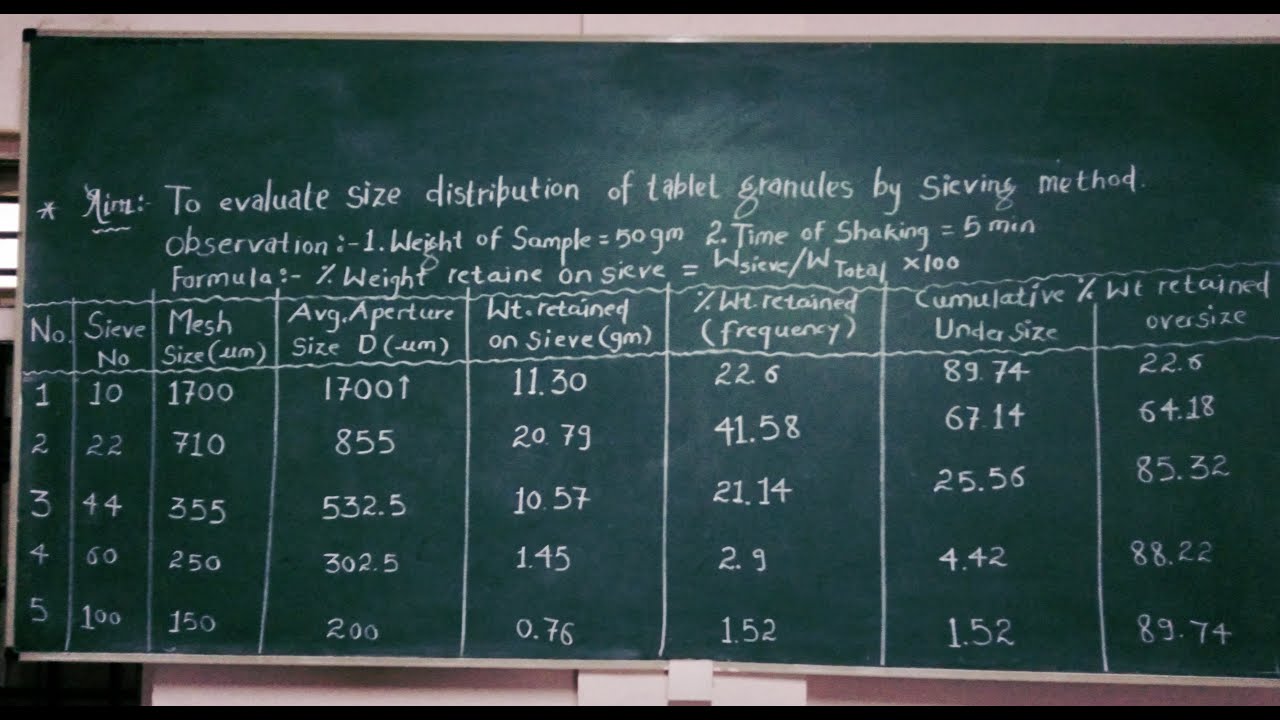 * Aim:- To evaluate size distribution of tablet granules by Sieving method.
Observation:-1. Weight of Sample = 50gm 2. Time of Shaking = 5 min
Formula:- % Weight retaine on sieve = Wsieve/WTotal ×100
No. Sieve No Mesh Size(µm) Avg. Aperture Size D (µm) Wt. retained on Sieve(gm) % Wt. retained (frequency) Cumulative % Wt retained Under Size oversize
1 10 1700 1700↑ 11.30 22.6 89.74 22.6
2 22 710 855 20.79 41.58 67.14 64.18
3 44 355 532.5 10.57 21.14 25.56 85.32
4 60 250 302.5 1.45 2.9 4.42 88.22
5 100 150 200 0.76 1.52 1.52 89.74